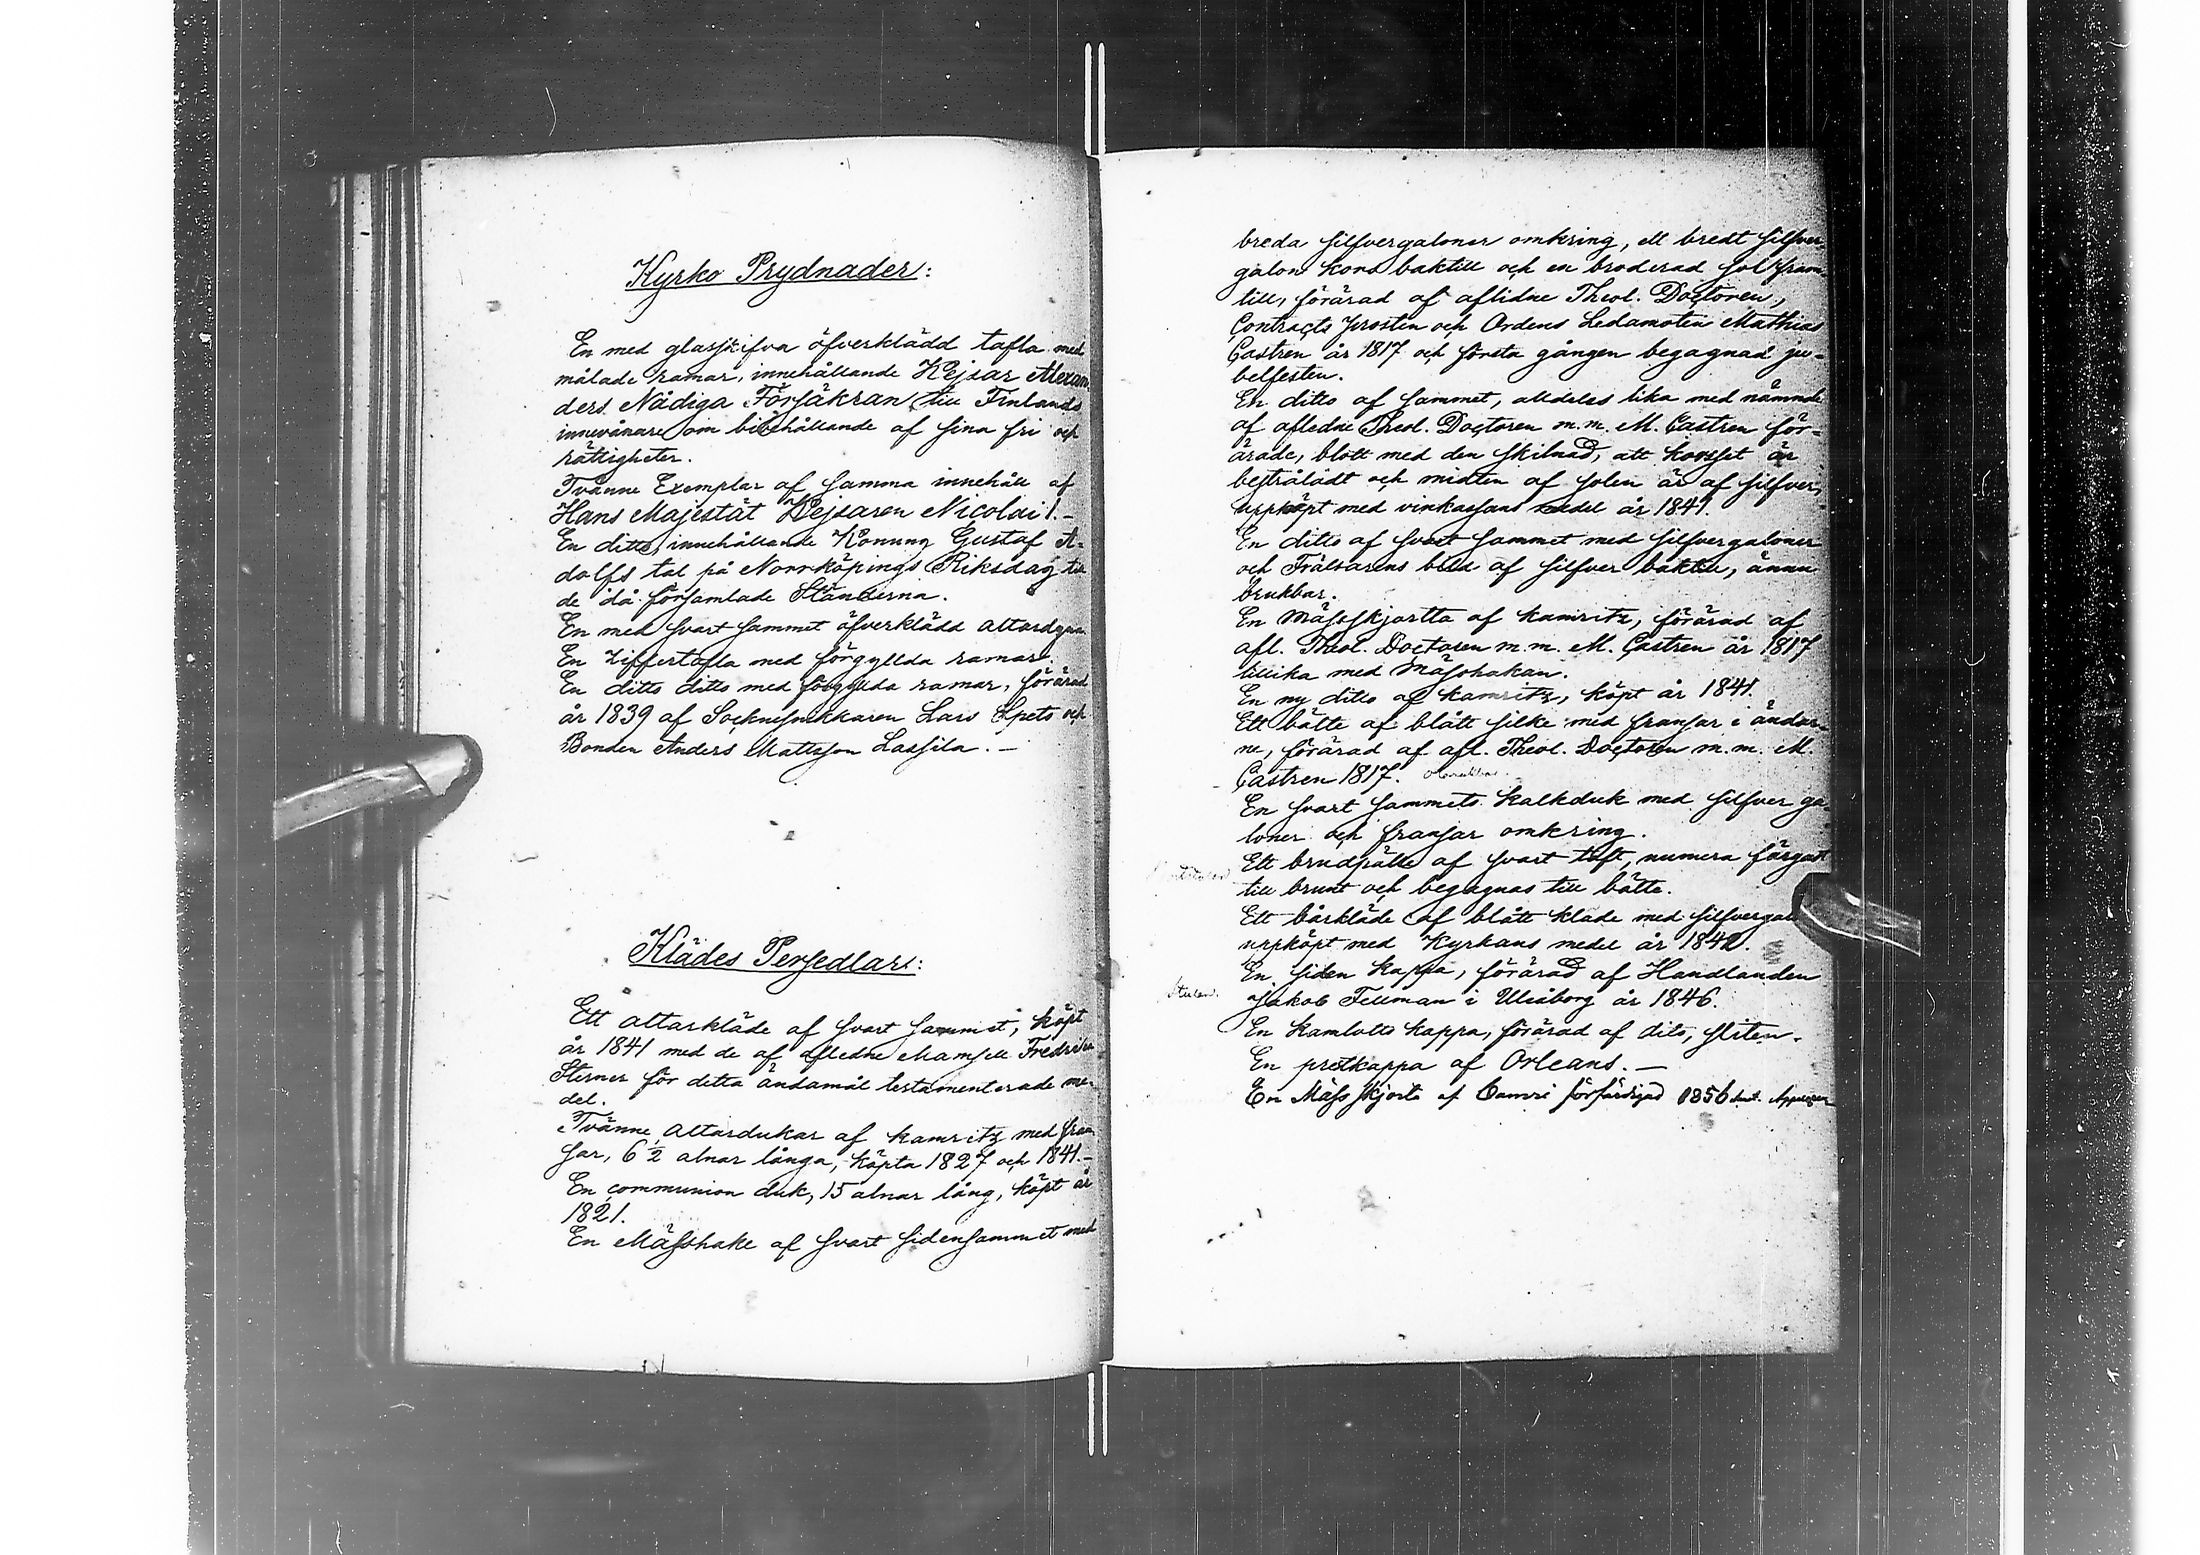 Kyrko Prydnader:
En med glasskifva öfverklädd tafla med
målade ramar, innehållande Kejsar Alexan
ders Nådiga Försäkran till Finlands
innevånare om bibehållande af sina fri och
rättigheter.
Tvänne Exemplar af samma innehåll af
Hans Majestät Kejsaren Nicolai I. -
En ditto, innehållande Konung Gustaf A-
dolfs tal på Norrköpings Riksdag till
de då församlade Ständerna.
En med svart sammet öfverklädd altardyna
En Ziffertafla med förgyllda ramar.
En ditto ditto med förgyllda ramar, förärad
år 1839 af Socknesnikkaren Lars Spets och
Bonden Anders Mattsson Lassila. -
Klädes Persedlar:
Ett altarkläde af svart sammet, köpt
år 1841 med de af aflidne Mamsell Fredrika
Sterner för detta ändamål testamenterade me-
del.
Tvänne altardukar af kamritz med fran
sar, 6 1/2 alnar långa, köpta 1827 och 1841. -
En communion duk, 15 alnar lång, köpt år
1821.
En Mässhake af svart sidensammet med
breda silfvergaloner omkring, ett bredt silfver
galon kors baktill och en broderad sol fram
till, förärad af aflidne Theol. Doctoren,
Contracts Prosten och Ordens Ledamoten Mathias
Castren år 1817 och första gången begagnad ju-
belfesten.
En ditto af sammet, alldeles lika med nämnde
af aflidne Theol. Doctoren m.m. M. Castren för-
ärade, blott med den skilnad, att korset är
bestrålädt och midten af solen är af silfver,
uppköpt med vinkassans medel år 1841.
En ditto af svart sammet med silfvergaloner
och Frälsarens bild af silfver baktill, ännu
brukbar.
En Mässkjortta af kamritz, förärad af
afl. Theol. Doctoren m.m. M. Castren år 1817
tillika med Mässhakan.
En ny ditto af kamritz, köpt år 1841.
Ett bälte af blått silke med fransar i ändar-
ne, förärad af afl. Theol. Doctoren m.m. M.
Castren 1817. obrukbar.
En svart sammets kalkduk med silfver ga-
loner och fransar omkring.
Ett brudpälle af svart taft, numera färgadt
till brunt och begagnas till bälte.
Ett bårkläde af blått kläde med silfvergal
uppköpt med Kyrkans medel år 1842.
En siden kappa, förärad af Handlanden
stulen. Jakob Fellman i Uleåborg år 1846.
En kamlotts kappa, förärad af dito, sliten.
En prestkappa af Orleans. -
En Mässskjorta af Camri förfärdigad 1856